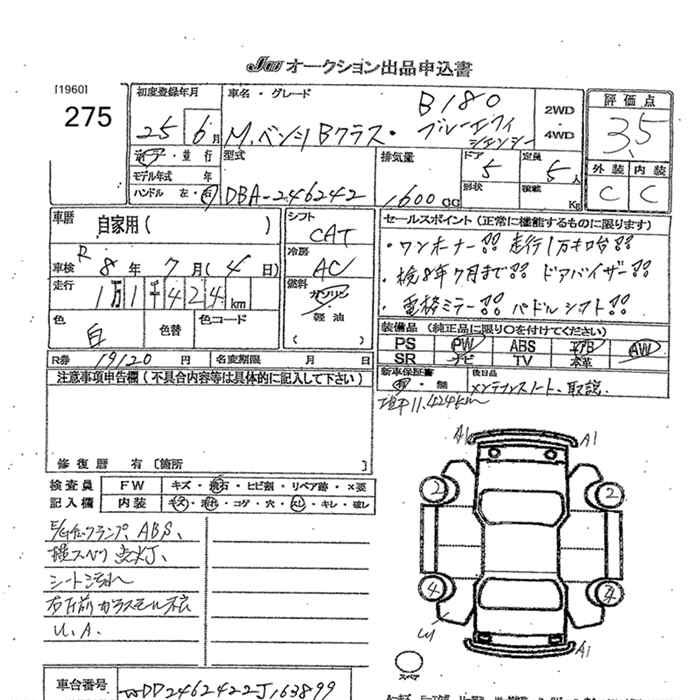 JU オークション出品申込書
[1960]
275
初度登録年月
25 6 月
車名・グレード
B180
M.ベンツ Bクラス・ブルーエフィシェンシー
2WD
・
4WD
評価点
3.5
外装 内装
C C
並行
モデル年式 年
ハンドル 左・右
型式
DBA-246242
排気量
1600 cc
ドア
5
形状
定員
5人
積載
Kg
車歴
自家用( )
車検 R8年7月(4日)
走行
1万1千424 km
色
白
色替
色コード
シフト
CAT
冷房
AC
燃料
ガソリン
軽油
( )
セールスポイント(正常に機能するものに限ります)
・ワンオーナー!! 走行1万キロ台!!
・検8年7月まで!! ドアバイザー!!
・電格ミラー!! パドルシフト!!
装備品(純正品に限り○を付けてください)
PS PW ABS エアB AW
SR ナビ TV 本革
R券 19120 円
名変期限 月 日
新車保証書
有・無
後日品
メンテナンスノート、取説
11,424km
注意事項申告欄(不具合内容等は具体的に記入して下さい)
修復歴 有〔箇所
検査員
記入欄
FW キズ・飛石・ヒビ割・リペア跡・×要
内装 キズ・汚れ・コゲ・穴・スレ・キレ・破レ
ABS、
横スベリ点灯
シート汚れ
右前ガラスモール
U.A.
A1 A1
2 2
4 4
W
A1
スペア
車台番号
WDD2462422J163899